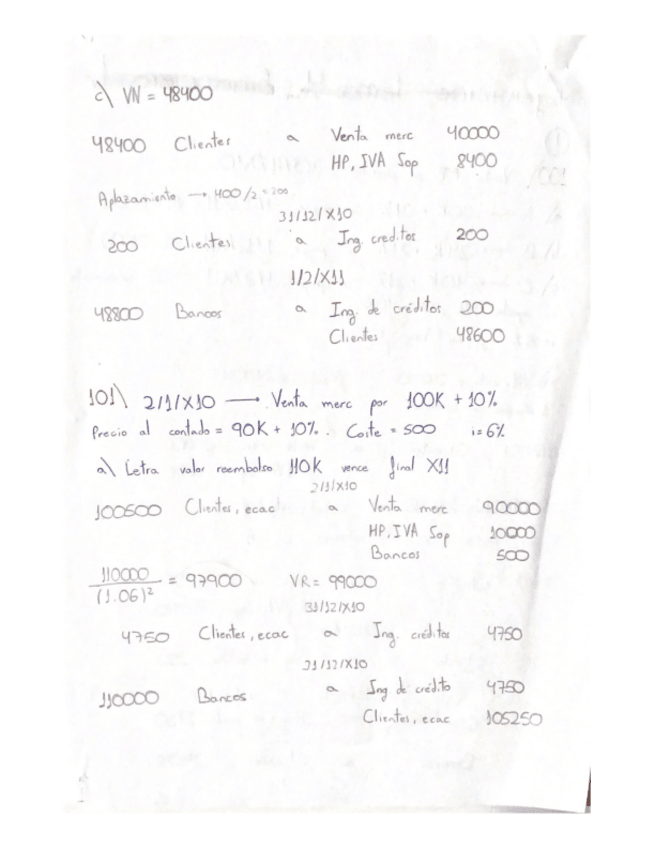 c\ VN = 48400
48400 Clientes a Venta merc 40000
HP, IVA Sop 8400
Aplazamiento → 400/2 = 200
31/12/X10
200 Clientes a Ing. creditos 200
1/2/X11
48800 Bancos a Ing. de créditos 200
Clientes 48600
101\ 2/1/X10 → Venta merc por 100K + 10%
Precio al contado = 90K + 10%. Coste = 500 i=6%
a\ Letra valor reembolso 110K vence final X11
2/1/X10
100500 Clientes, ecac a Venta merc 90000
HP, IVA Sop 10000
Bancos 500
110000/(1.06)² = 97900 VR = 99000
31/12/X10
4750 Clientes, ecac a Ing. créditos 4750
31/12/X10
110000 Bancos a Ing de crédito 4750
Clientes, ecac 105250